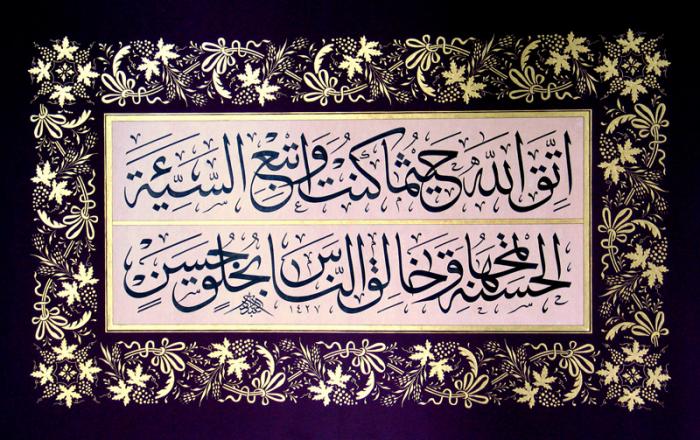 اتق الله حيثما كنت واتبع السيئة
الحسنة تمحها وخالق الناس بخلق حسن
١٤٢٧